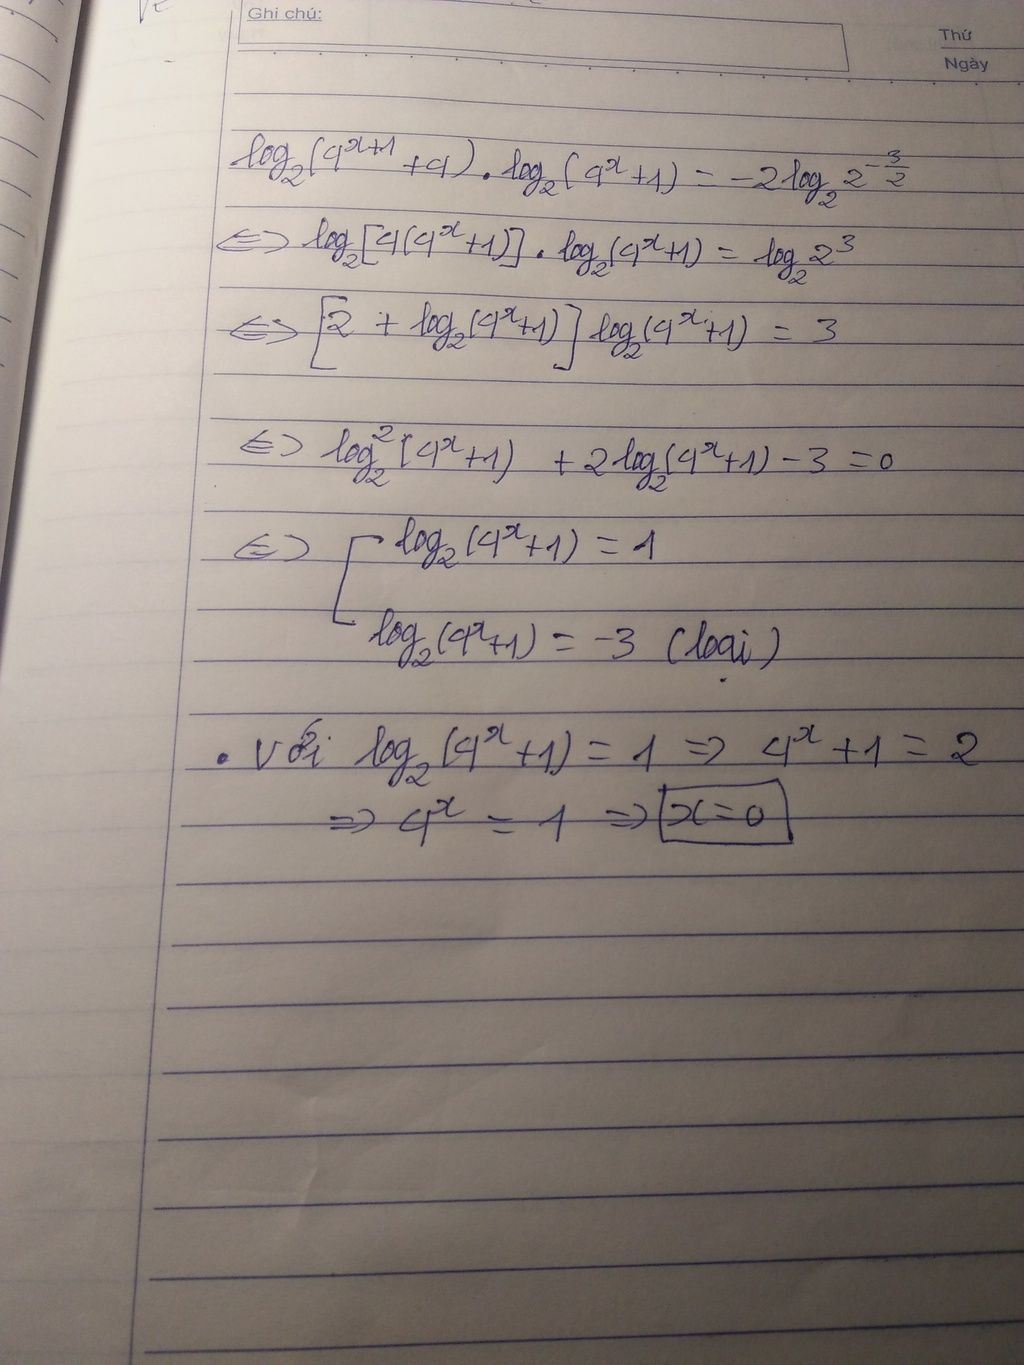 Ghi chú:
Thứ
Ngày
log₂(4ˣ⁺¹ + 4) . log₂(4ˣ + 1) = -2log₂ 2^(-3/2)
⇔ log₂[4(4ˣ+1)] . log₂(4ˣ+1) = log₂ 2³
⇔ [2 + log₂(4ˣ+1)] log₂(4ˣ+1) = 3
⇔ log₂²(4ˣ+1) + 2log₂(4ˣ+1) - 3 = 0
⇔ [ log₂(4ˣ+1) = 1
log₂(4ˣ+1) = -3 (loại)
• Với log₂(4ˣ+1) = 1 ⇒ 4ˣ + 1 = 2
⇒ 4ˣ = 1 ⇒ x = 0